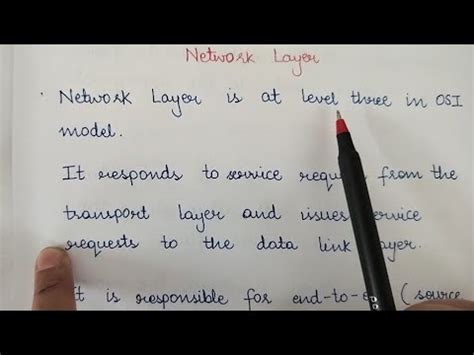 Network Layer
Network Layer is at level three in OSI
model.
It responds to service from the
transport layer and issues service
requests to the data link layer.
It is responsible for end-to- (source